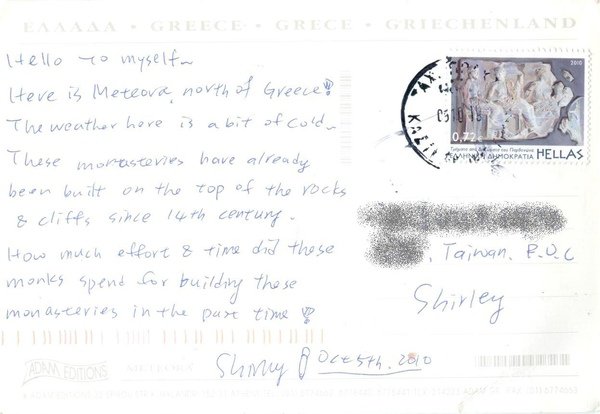 ΕΛΛΑΔΑ • GREECE • GRECE • GRIECHENLAND
Hello to myself~
Here is Meteora, north of Greece!
The weather here is a bit of cold~
These monasteries have already
been built on the top of the rocks
& cliffs since 14th century.
How much effort & time did these
monks spend for building these
monasteries in the past time!
Shirley Oct 5th, 2010
2010
0,72€
ΕΛΛΗΝΙΚΗ ΔΗΜΟΚΡΑΤΙΑ HELLAS
, Taiwan, R.O.C
Shirley
ADAM EDITIONS
METEORA